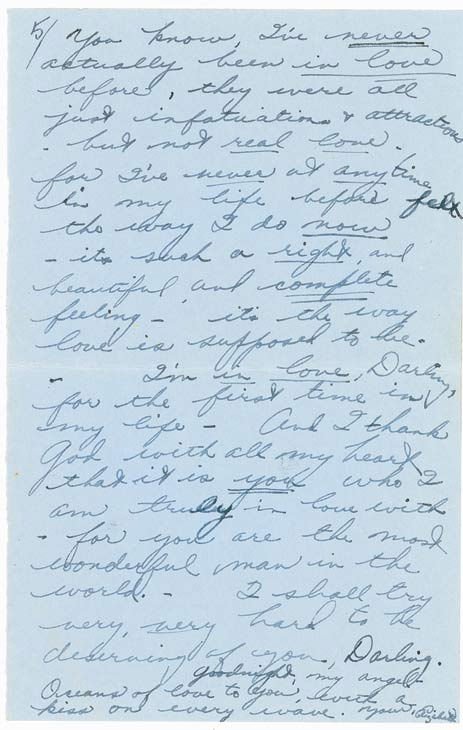 5/ You know, I've never
actually been in love
before, they were all
just infatuations & attractions
- but not real love.
for I've never at anytime
in my life before felt
the way I do now
- its such a right, and
beautiful and complete
feeling - its the way
love is supposed to be.
- I'm in love, Darling,
for the first time in
my life - And I thank
God with all my heart
that it is you who I
am truly in love with
- for you are the most
wonderful man in the
world. - I shall try
very, very hard to be
deserving of you, Darling.
goodnight, my angel
Oceans of love to you, with a
kiss on every wave. your Elizabeth